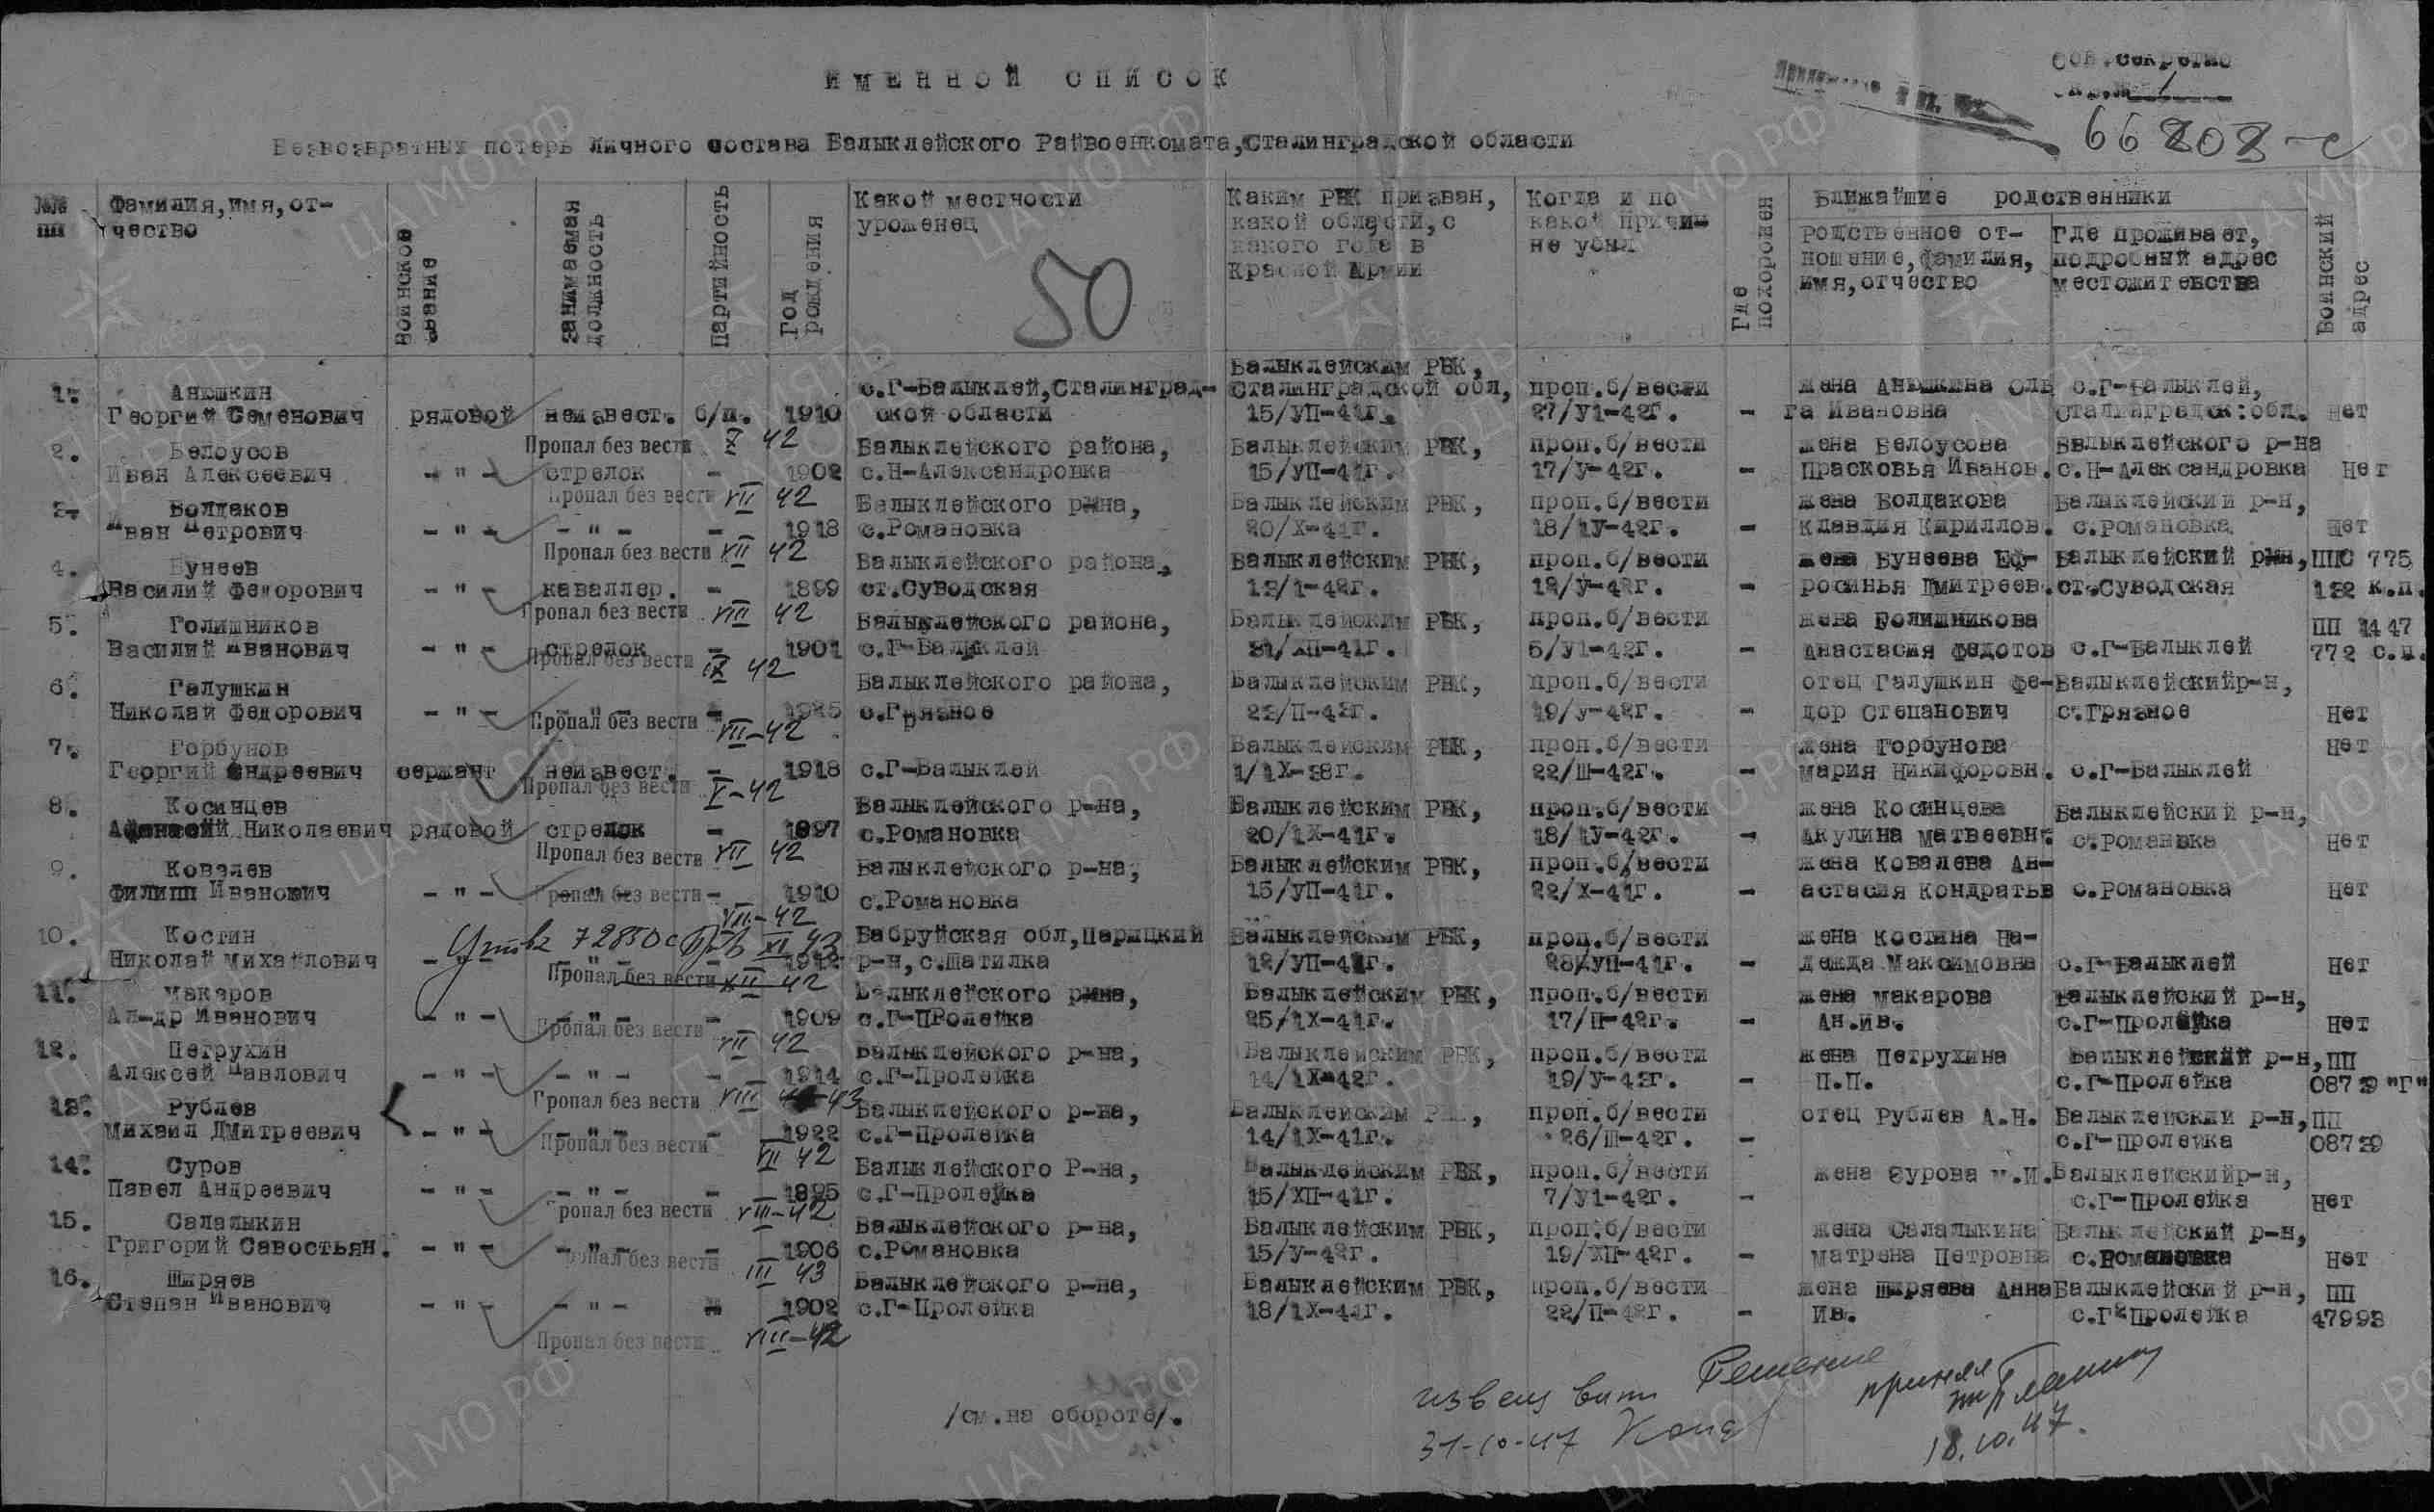 Сов.секретно
ИМЕННОЙ СПИСОК
66808-с
Безвозвратных потерь личного состава Балыклейского Райвоенкомата, Сталинградской области
№№ пп
Фамилия, имя, от-
чество
Воинское звание
Занимаемая должность
Партийность
Год рождения
Какой местности
уроженец
50
Каким РВК призван,
какой области, с
какого года в
Красной Армии
Когда и по
какой причи-
не убыл
Где похоронен
Ближайшие родственники
Родственное от-
ношение, фамилия,
имя, отчество
Где проживает,
подробный адрес
местожительства
Воинский адрес
Балыклейским РВК,
1. Анюшкин с.Г-Балыклей, Сталинград- Сталинградской обл, проп.б/вести жена Анюшкина Оль с.Г-Балыклей,
Георгий Семенович рядовой неизвест. б/п. 1910 ской области 15/УП-41г. 27/У1-42г. - га Ивановна Сталинградск:обл. нет
Пропал без вести X 42
2. Белоусов Балыклейского района, Балыклейским РВК, проп.б/вести жена Белоусова Балыклейского р-на
Иван Алексеевич -"- стрелок - 1902 с.Н-Александровка 15/УП-41г. 17/У-42г. - Прасковья Иванов. с.Н-Александровка Нет
Пропал без вести VII 42
3. Болдаков Балыклейского р-на, Балыклейским РВК, проп.б/вести жена Болдакова Балыклейский р-н,
Иван Петрович -"- -"- - 1918 с.Романовка 20/Х-41г. 18/1У-42г. - Клавдия Кириллов. с.Романовка нет
Пропал без вести VII 42
4. Бунеев Балыклейского района, Балыклейским РВК, проп.б/вести жена Бунеева Еф- Балыклейский р-н, ППС 775
Василий Федорович -"- каваллер. - 1899 ст.Суводская 13/1-42г. 12/У-42г. - росинья Дмитреев. ст.Суводская 132 к.п.
Пропал без вести VIII 42
5. Голишников Балыклейского района, Балыклейским РВК, проп.б/вести жена Голишникова ПП 1447
Василий Иванович -"- стрелок - 1901 с.Г-Балыклей 31/ХП-41г. 5/У1-42г. - Анастасия Федотов с.Г-Балыклей 772 с.п.
Пропал без вести IX 42
6. Галушкин Балыклейского района, Балыклейским РВК, проп.б/вести отец Галушкин Фе- Балыклейскийр-н,
Николай Федорович -"- -"- - 1925 с.Грязное 22/П-42г. 19/У-42г. - дор Степанович с.Грязное Нет
Пропал без вести VII-42
7. Горбунов Балыклейским РВК, проп.б/вести жена Горбунова Нет
Георгий Андреевич сержант неизвест. - 1918 с.Г-Балыклей 1/1Х-38г. 22/Ш-42г. - Мария Никифоровн. с.Г-Балыклей
Пропал без вести V-42
8. Косинцев Балыклейского р-на, Балыклейским РВК, проп.б/вести жена Косинцева Балыклейский р-н,
Николаевич рядовой стрелок - 1897 с.Романовка 20/1Х-41г. 18/1У-42г. - Акулина Матвеевн. с.Романовка Нет
Пропал без вести VII 42
9. Ковалев Балыклейского р-на, Балыклейским РВК, проп.б/вести жена Ковалева Ан-
Филипп Иванович -"- -"- - 1910 с.Романовка 15/УП-41г. 22/Х-41г. - астасия Кондратьв с.Романовка Нет
Пропал без вести VII-42
72850с XI 43
10. Костин Бабруйская обл, Парицкий Балыклейским РВК, проп.б/вести жена Костина На-
Николай Михайлович -"- -"- - 1912 р-н, с.Шатилка 12/УП-41г. 28/УП-41г. - дежда Максимовна с.Г-Балыклей Нет
Пропал без вести XII 42
11. Макаров Балыклейского р-на, Балыклейским РВК, проп.б/вести жена Макарова Балыклейский р-н,
Ал-др Иванович -"- -"- - 1909 с.Г-Пролейка 25/1Х-41г. 17/П-42г. - Ан.Ив. с.Г-Пролейка Нет
Пропал без вести VII 42
12. Петрухин Балыклейского р-на, Балыклейским РВК, проп.б/вести жена Петрухина Балыклейский р-н, ПП
Алексей Павлович -"- -"- - 1914 с.Г-Пролейка 14/1Х-42г. 19/У-43г. - П.П. с.Г-Пролейка 08729 "Г"
Пропал без вести VIII 43
13. Рублев Балыклейского р-на, Балыклейским проп.б/вести отец Рублев А.Н. Балыклейский р-н, ПП
Михаил Дмитреевич -"- -"- - 1922 с.Г-Пролейка 14/1Х-41г. 26/Ш-42г. - с.Г-Пролейка 08729
Пропал без вести VII 42
14. Суров Балыклейского Р-на, Балыклейским РВК, проп.б/вести жена Сурова Балыклейскийр-н,
Павел Андреевич -"- -"- - 1895 с.Г-Пролейка 15/ХП-41г. 7/У1-42г. - с.Г-Пролейка Нет
Пропал без вести VIII-42
15. Салалыкин Балыклейского р-на, Балыклейским РВК, проп.б/вести жена Салалыкина Балыклейский р-н,
Григорий Савостьян. -"- -"- - 1906 с.Романовка 15/У-42г. 19/ХП-42г. - Матрена Петровна с.Романовка Нет
Пропал без вести III 43
16. Ширяев Балыклейского р-на, Балыклейским РВК, проп.б/вести жена Ширяева Анна Балыклейский р-н, ПП
Степан Иванович -"- -"- - 1902 с.Г-Пролейка 18/1Х-41г. 22/П-42г. - Ив. с.Г-Пролейка 47993
Пропал без вести VIII-42
/см.на обороте/.
Решение
принял
18.10.47.
31-10-47
ЦА МО РФ